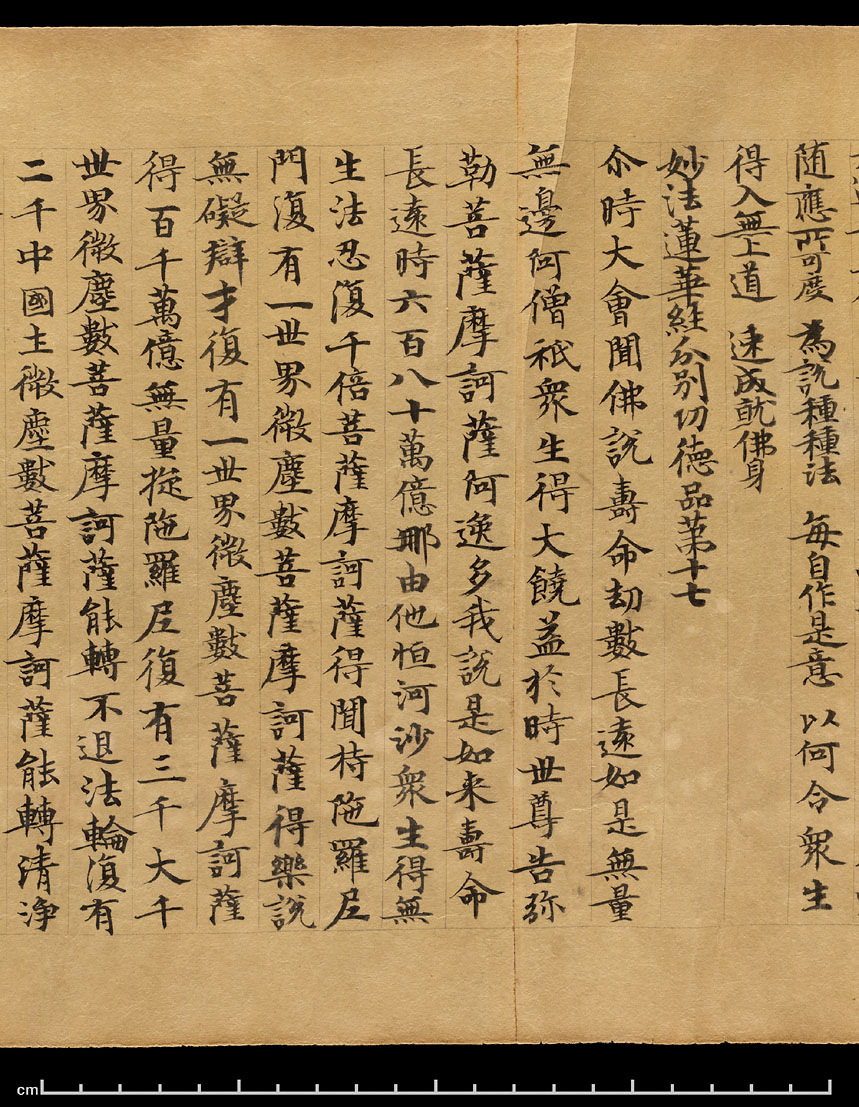 随應所可度 為說種種法 每自作是意 以何令衆生
得入無上道 速成就佛身
妙法蓮華経分別功德品第十七
尒時大會聞佛說壽命劫數長遠如是無量
無邊阿僧祇衆生得大饒益於時世尊告弥
勒菩薩摩訶薩阿逸多我說是如来壽命
長遠時六百八十萬億那由他恒河沙衆生得無
生法忍復千倍菩薩摩訶薩得聞持陁羅尼
門復有一世界微塵數菩薩摩訶薩得樂說
無礙辯才復有一世界微塵數菩薩摩訶薩
得百千萬億無量旋陁羅尼復有三千大千
世界微塵數菩薩摩訶薩能轉不退法輪復有
二千中國土微塵數菩薩摩訶薩能轉清淨
cm